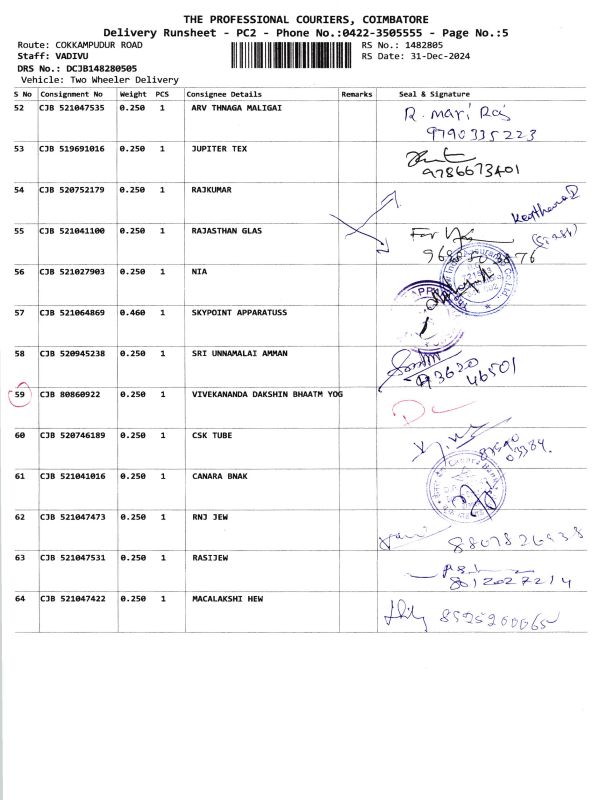 THE PROFESSIONAL COURIERS, COIMBATORE
Delivery Runsheet - PC2 - Phone No.:0422-3505555 - Page No.:5
Route: COKKAMPUDUR ROAD RS No.: 1482805
Staff: VADIVU RS Date: 31-Dec-2024
DRS No.: DCJB148280505
Vehicle: Two Wheeler Delivery
S No Consignment No Weight PCS Consignee Details Remarks Seal & Signature
52 CJB 521047535 0.250 1 ARV THNAGA MALIGAI R. mari Raj
9790335223
53 CJB 519691016 0.250 1 JUPITER TEX
9786673401
54 CJB 520752179 0.250 1 RAJKUMAR
55 CJB 521041100 0.250 1 RAJASTHAN GLAS For
56 CJB 521027903 0.250 1 NIA
57 CJB 521064869 0.460 1 SKYPOINT APPARATUSS
58 CJB 520945238 0.250 1 SRI UNNAMALAI AMMAN
93620
46501
59 CJB 80860922 0.250 1 VIVEKANANDA DAKSHIN BHAATM YOG
60 CJB 520746189 0.250 1 CSK TUBE
61 CJB 521041016 0.250 1 CANARA BNAK
Canara Bank
62 CJB 521047473 0.250 1 RNJ JEW
8807826938
63 CJB 521047531 0.250 1 RASIJEW
8012027214
64 CJB 521047422 0.250 1 MACALAKSHI HEW 8525200065